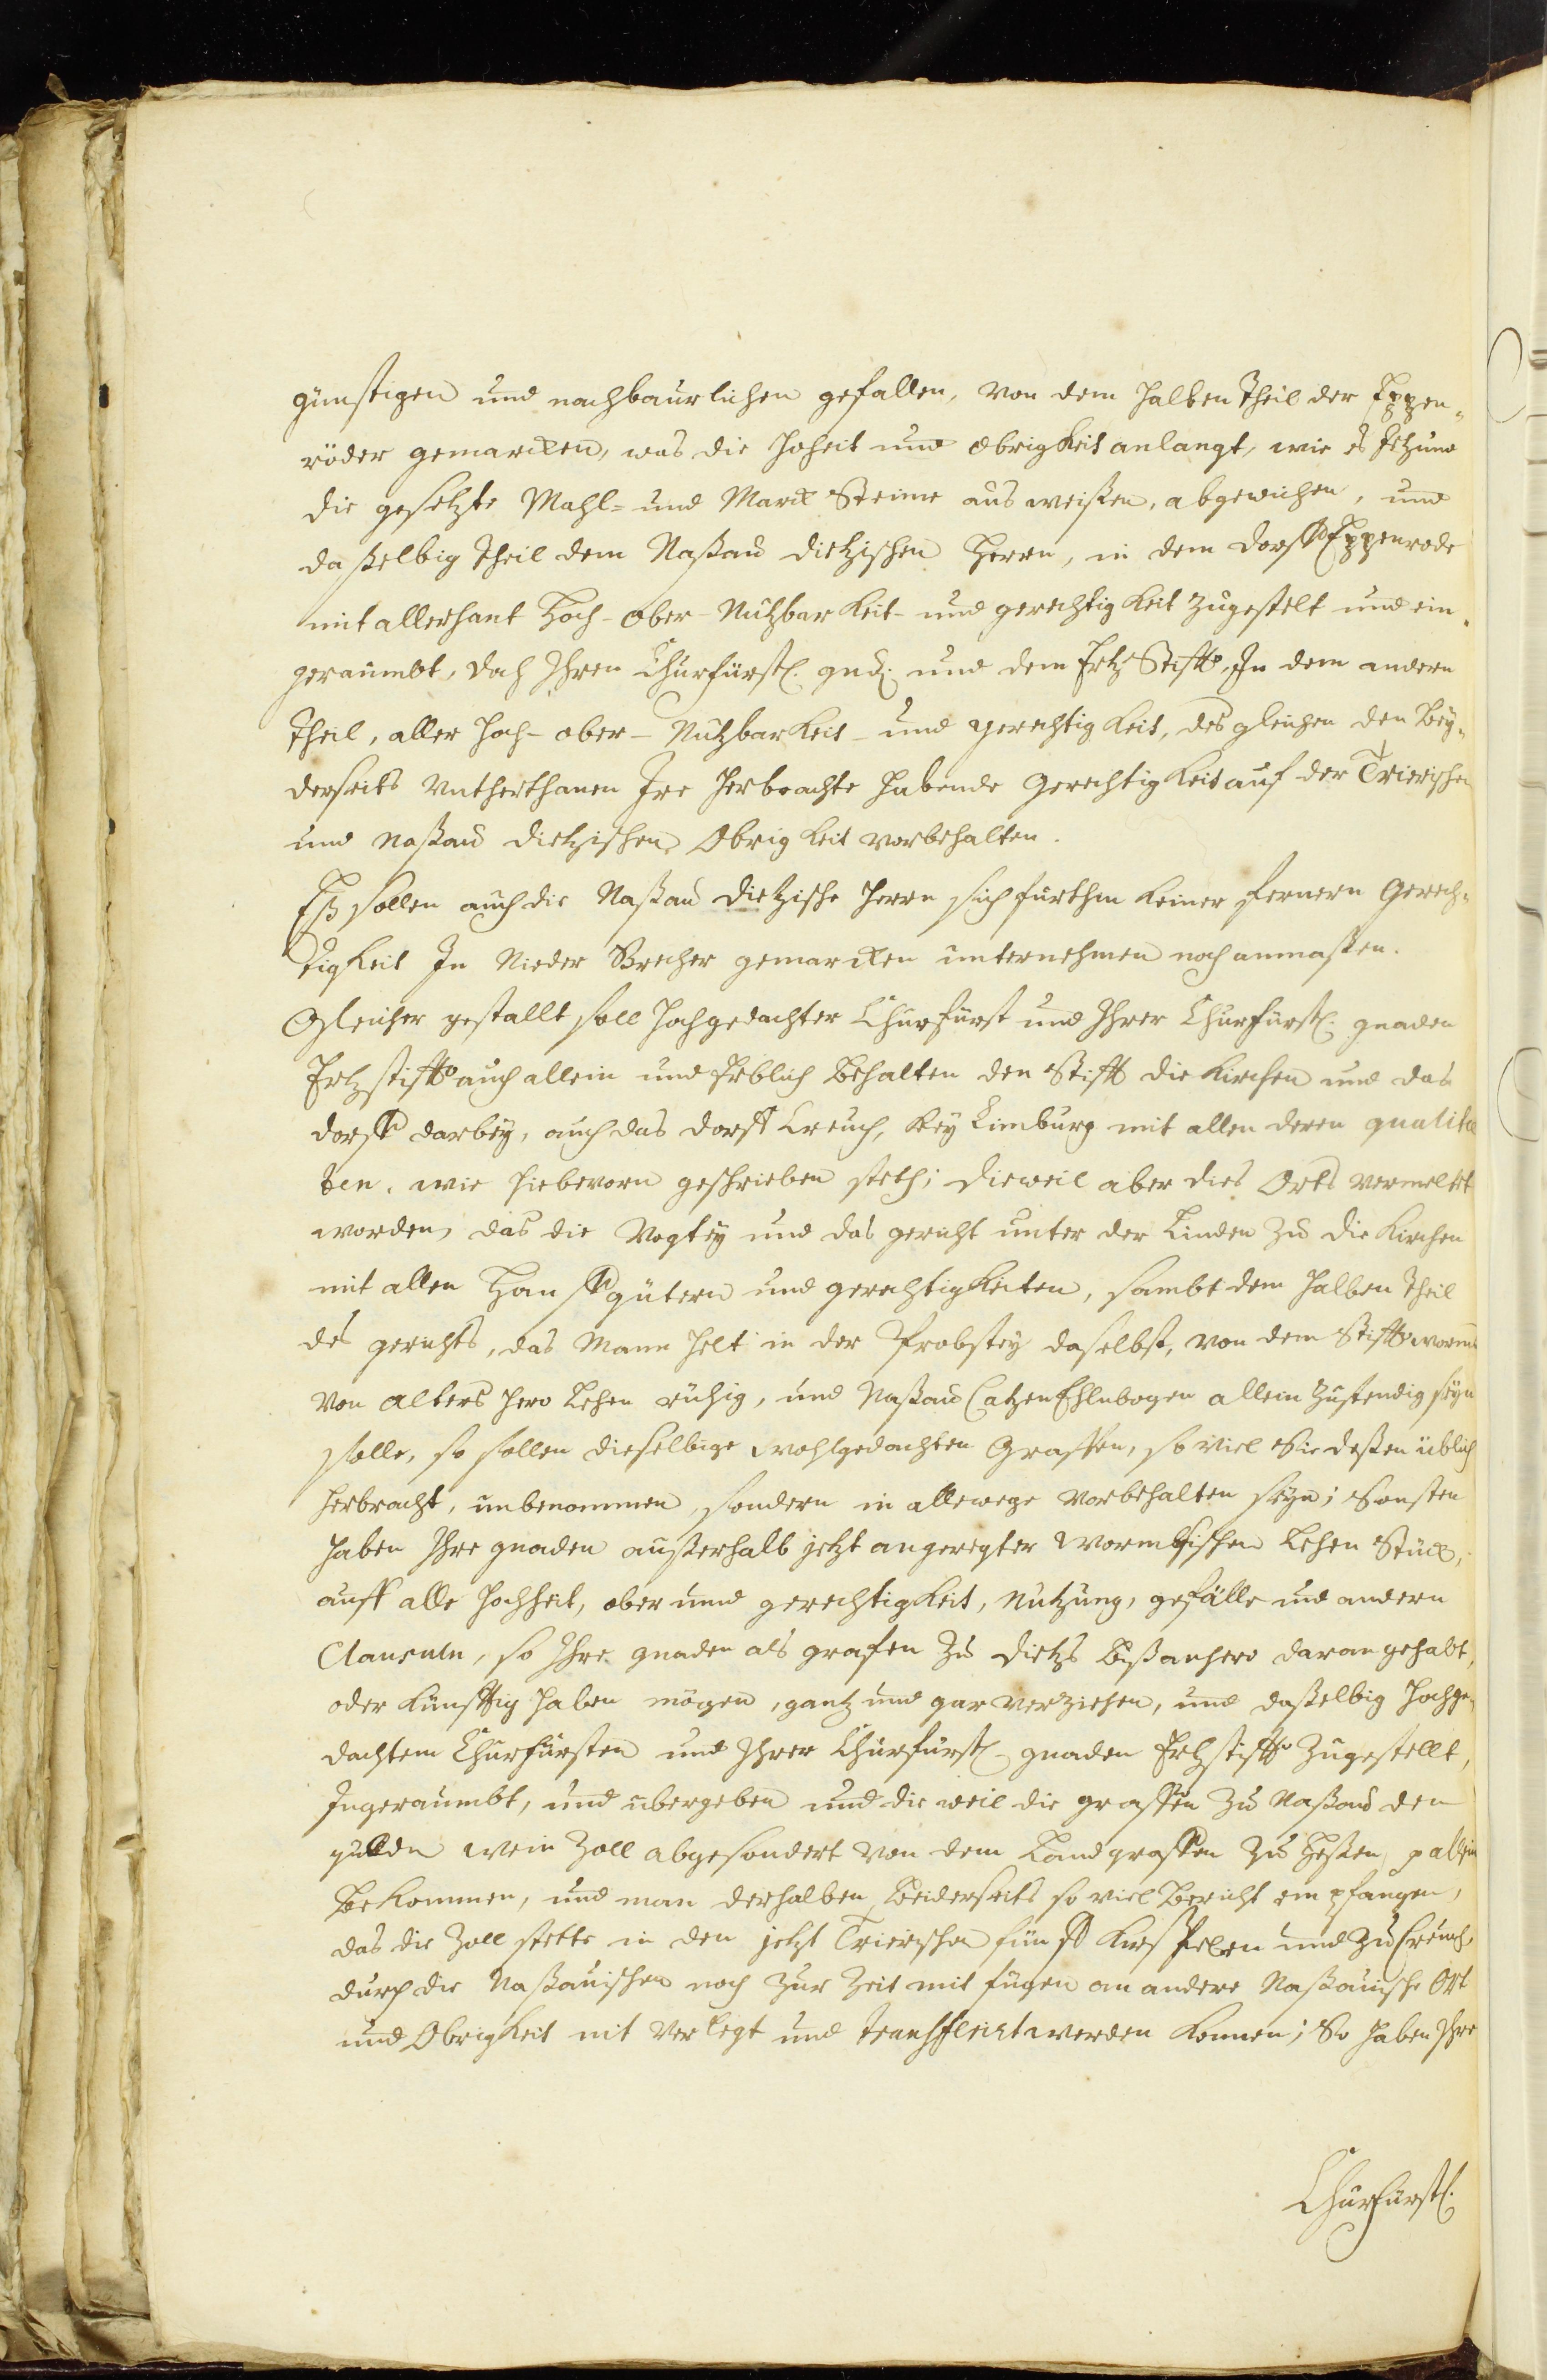 günstigen und nachbaurlichen gefallen, von dem halben Theil der Eppen-
röder gemarcken, was die Hoheit und Obrigkeit anlangt, wie es Jetzund
die gesetzte Mahl- und Marck Steine ausweißen, abgewichen, und
daßelbig Theil dem Naßau dietzischen Herrn, in dem dorff Eppenrode
mit allerhant Hoch- ober- Nutzbarkeit- und gerechtigkeit zugestelt und ein-
geraumbt, doch Ihren Churfürstl. gnd. und dem Ertz Stifft, In dem andern
Theil, aller Hoch- ober- Nutzbarkeit- und gerechtigkeit, des gleichen den Bey-
derseits Untherthanen Ire herbrachte habende Gerechtigkeit auf der Trierischen
und Naßau dietzischen Obrigkeit vorbehalten.
Eß sollen auch die Naßau dietzische Herrn sich fürthin keiner fernern Gerech-
tigkeit In Nieder Brecher gemarcken unternehmen noch anmaßen.
Gleicher gestallt soll Hochgedachter Churfürst und Ihrer Churfürstl. gnaden
Ertzstifft auch allein und Erblich behalten den Stifft die Kirchen und das
dorff darbey, auch das dorff Creuch, bey Limburg mit allen deren qualitæ
ten, wie hiebevorn geschrieben steth; dieweil aber dies Orts vermeltet
worden, das die Vogtey und das gericht unter der Linden zu die Kirchen
mit allen gütern und gerechtigkeiten, sambt dem halben Theil
des gerichts, das Mann helt in der Probstey daselbst, von dem Stifft worms
von alters hero Lehen rührig, und Naßau CatzenEhlnbogen allein zustendig seyn
solle, so sollen dieselbige wohlgedachten Graffen, so viel Sie deßen üblich
herbracht, unbenommen, sondern in allewege vorbehalten seyn; Sonsten
haben Ihre gnaden außerhalb jetzt angeregter wormbsischen Lehen Stück,
auff alle Hochheit, ober und gerechtigkeit, Nutzung, gefälle und andern
Clausuln, so Ihre gnaden als grafen zu Dietz bißanhero daran gehabt,
oder künfftig haben mögen, gantz und gar verziehen, und daßelbig Hochge-
dachtem Churfürsten und Ihrer Churfürstl. gnaden Ertzstifft zugestellt,
Ingeraumbt, und übergeben und die weil die graffen zu Naßau den
gulden wein Zoll abgesondert von dem Landgraffen zu Heßen,
bekommen, und man derhalben beiderseits so viel Bericht empfangen,
das die Zoll stette in den jetzt Trierischen fünff Kirsspelen und zu Creuch,
durch die Naßauischen noch zur Zeit mit fugen an andere Naßauische Ort
und Obrigkeit nit verlegt und transferirt werden können; So haben Ihre
Churfürstl.